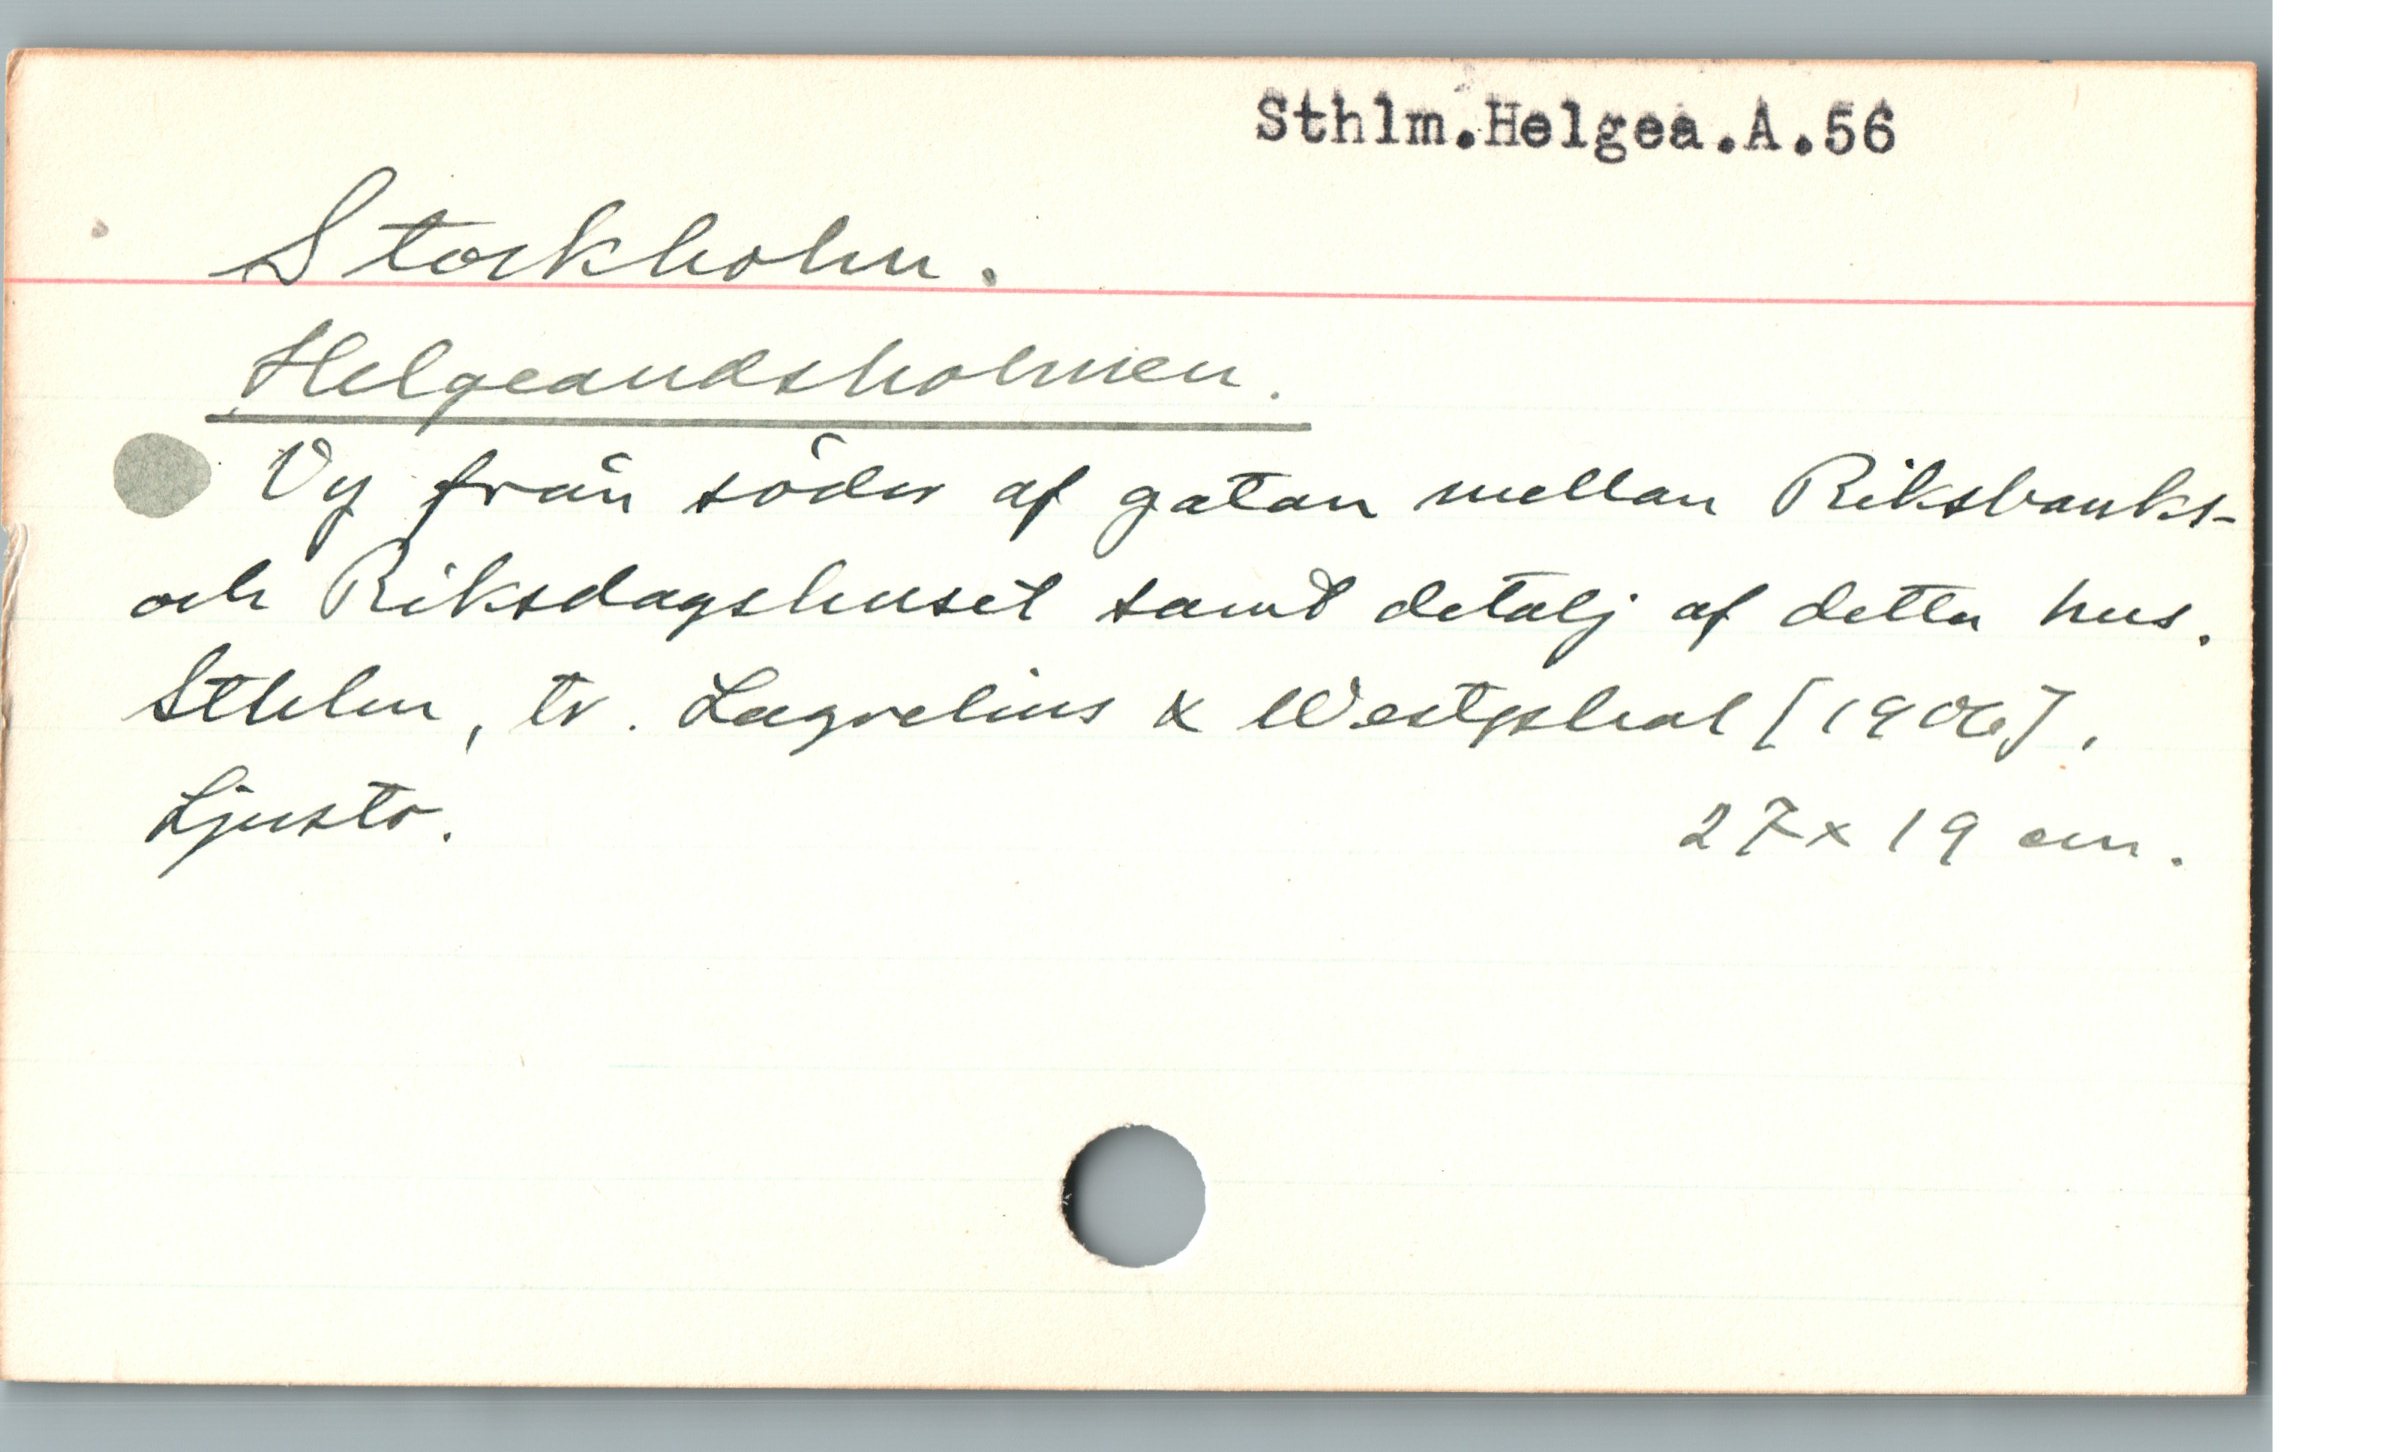 Sthlm.Helgea.A.56
Stockholm.
Helgeandsholmen.
Vy från söder af gatan mellan Riksbanks-
och Riksdagshuset samt detalj af detta hus.
Sthlm, tr. Lagrelius & Westphal [1906].
Ljustr.
27x19 cm.